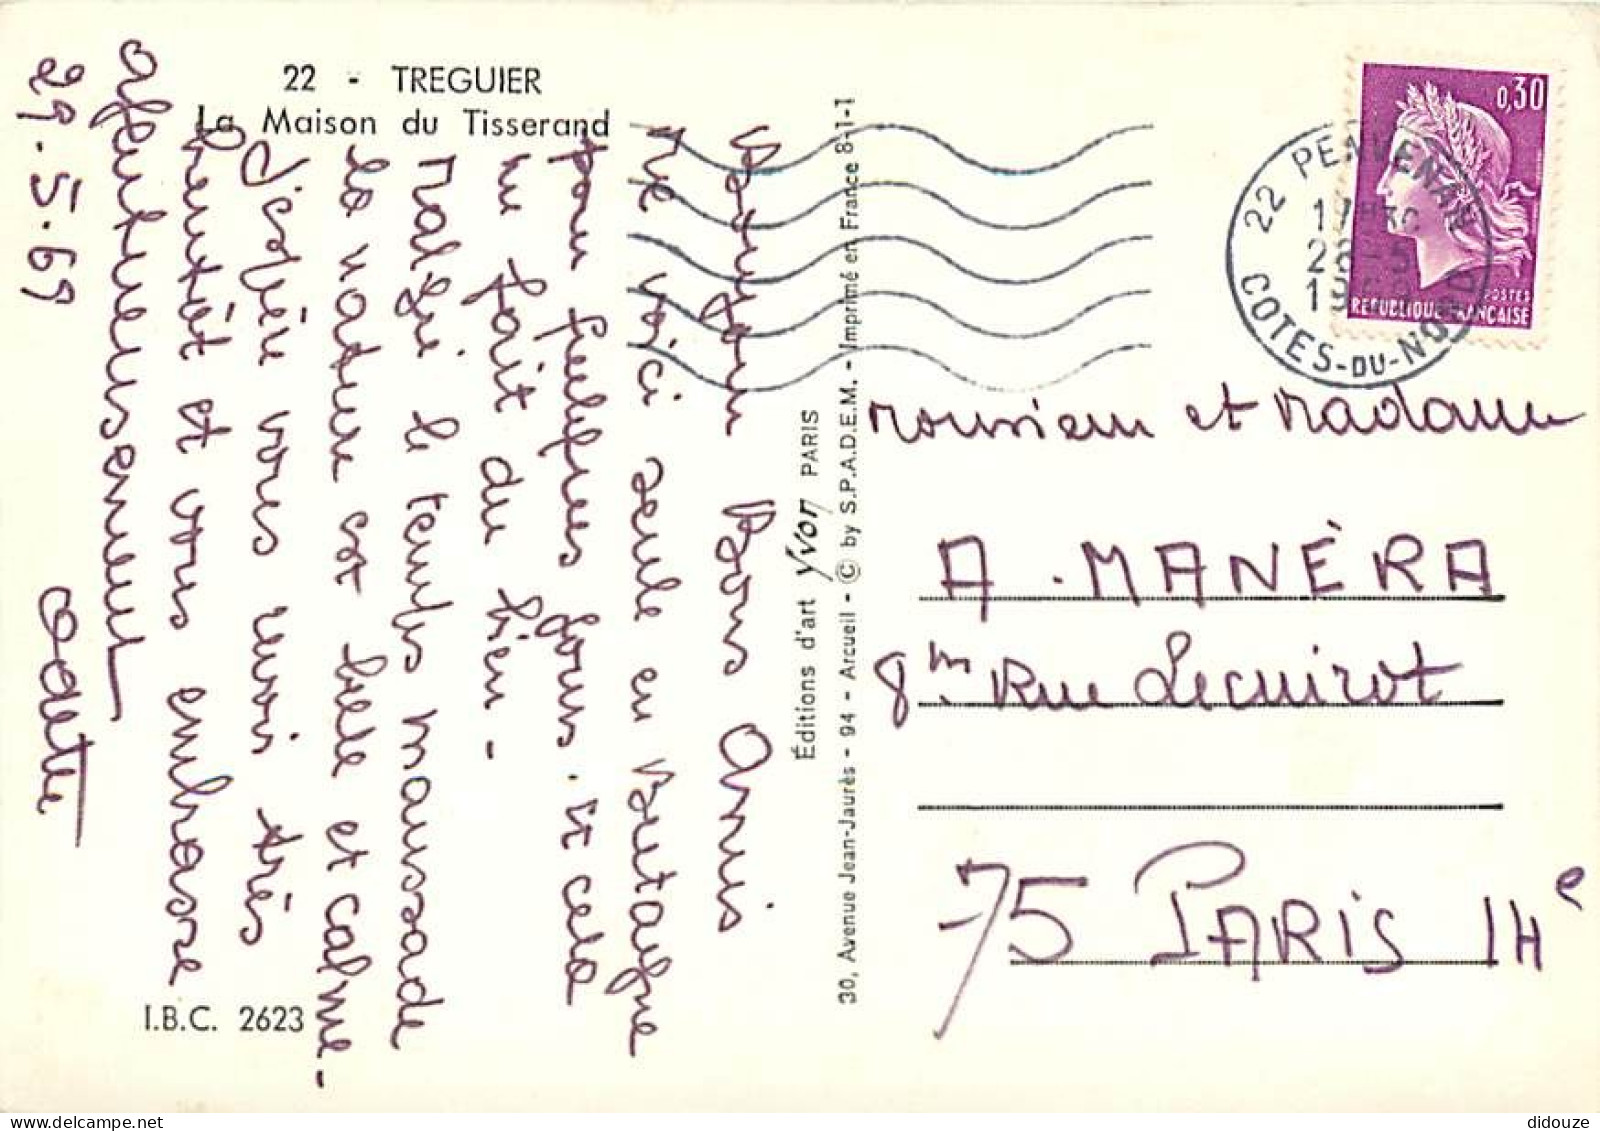 22 - TREGUIER
La Maison du Tisserand
Bonjour Bons Amis
Me voici seule en Bretagne
pour quelques jours. Et cela
me fait du bien -
Malgré le temps maussade
la nature est belle et calme -
J'espère vous revoir très
bientôt et vous embrasse
affectueusement
29.5.69
Odette
I.B.C. 2623
Éditions d'art Yvon PARIS
30, Avenue Jean-Jaurès - 94 - Arcueil - © by S.P.A.D.E.M. - Imprimé en France 8-1-1
0,30
POSTES
REPUBLIQUE FRANÇAISE
22 PENVENAN
28-5
COTES-DU-NORD
Monsieur et Madame
A. MANÉRA
8 Rue Lecuirot
75 PARIS 14e
didouze